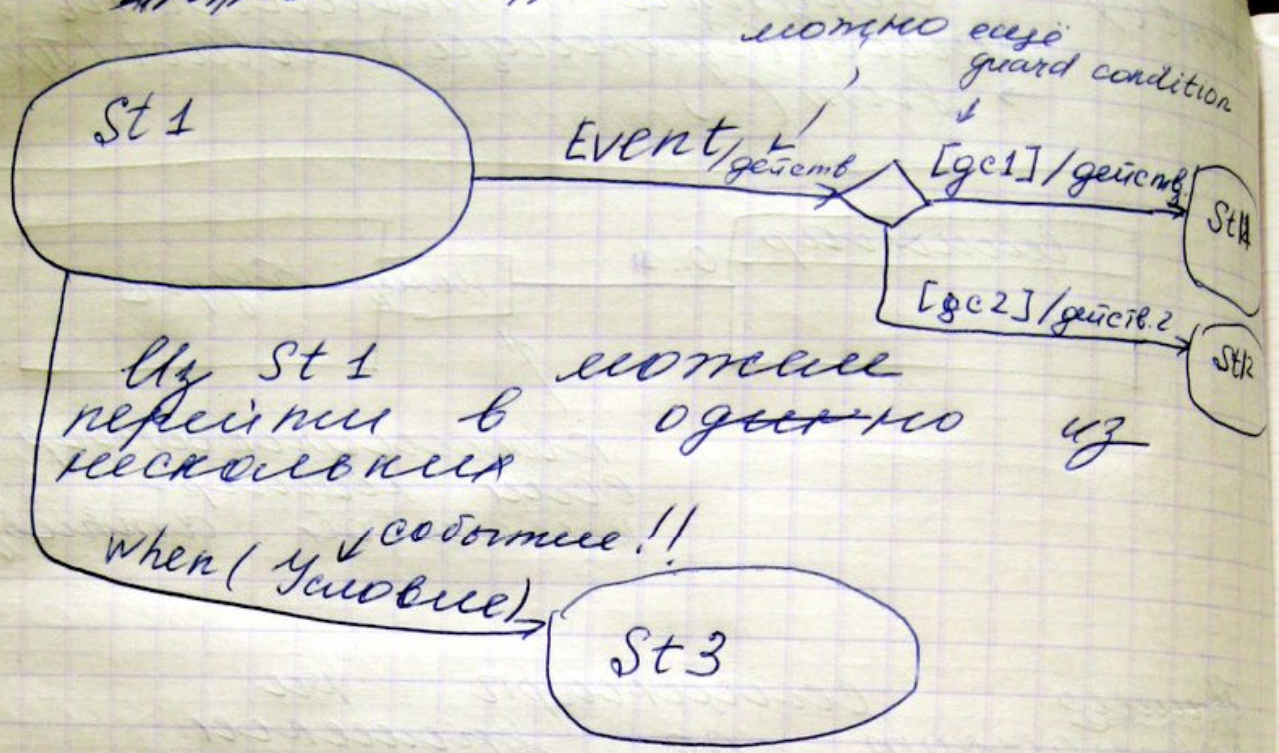 можно ещё
guard condition
St 1
Event/действ
[gc1]/действ.
[gc2]/действ.2
St12
Из St 1 можем
перейти в одно из
нескольких
событие!!
when (Условие)
St 3